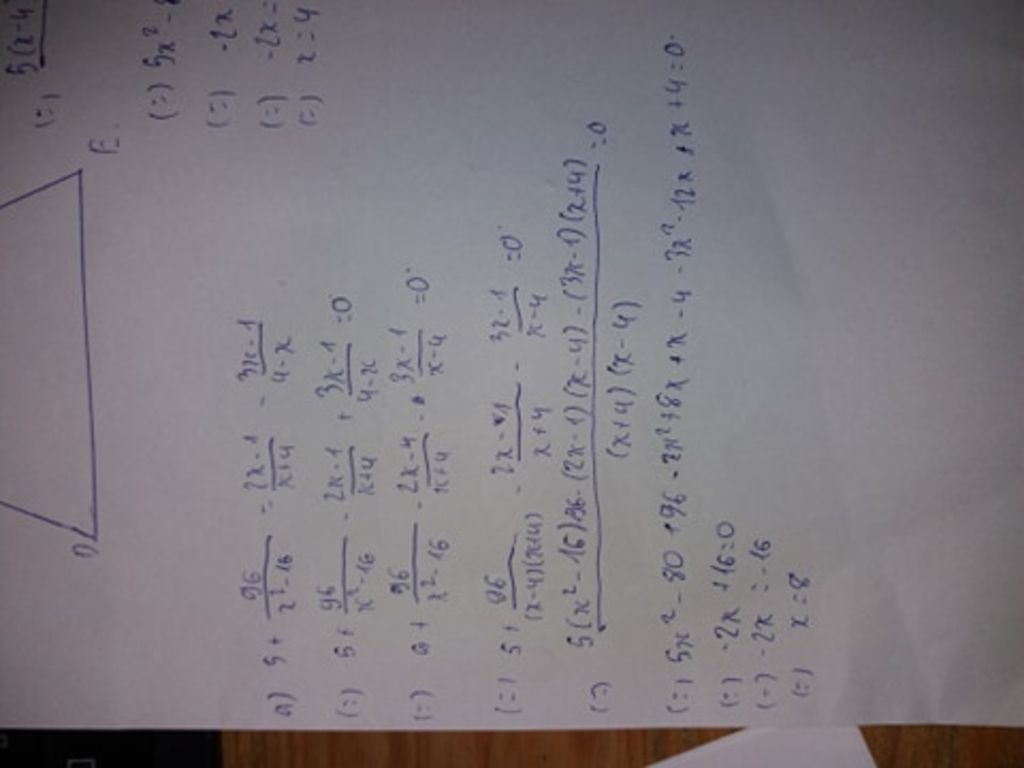 (=) 5(x-4
(=) 5x² - 8
(=) -2x
(=) -2x =
(=) x = 4
D E
a) 5 + 96/(x² - 16) = (2x - 1)/(x + 4) - (3x - 1)/(4 - x)
(=) 5 + 96/(x² - 16) - (2x - 1)/(x + 4) + (3x - 1)/(4 - x) = 0
(=) 5 + 96/(x² - 16) - (2x - 1)/(x + 4) - (3x - 1)/(x - 4) = 0
(=) 5 + 96/((x - 4)(x + 4)) - (2x - 1)/(x + 4) - (3x - 1)/(x - 4) = 0
(=) (5(x² - 16) + 96 - (2x - 1)(x - 4) - (3x - 1)(x + 4))/((x + 4)(x - 4)) = 0
(=) 5x² - 80 + 96 - 2x² + 8x + x - 4 - 3x² - 12x + x + 4 = 0
(=) -2x + 16 = 0
(=) -2x = -16
(=) x = 8